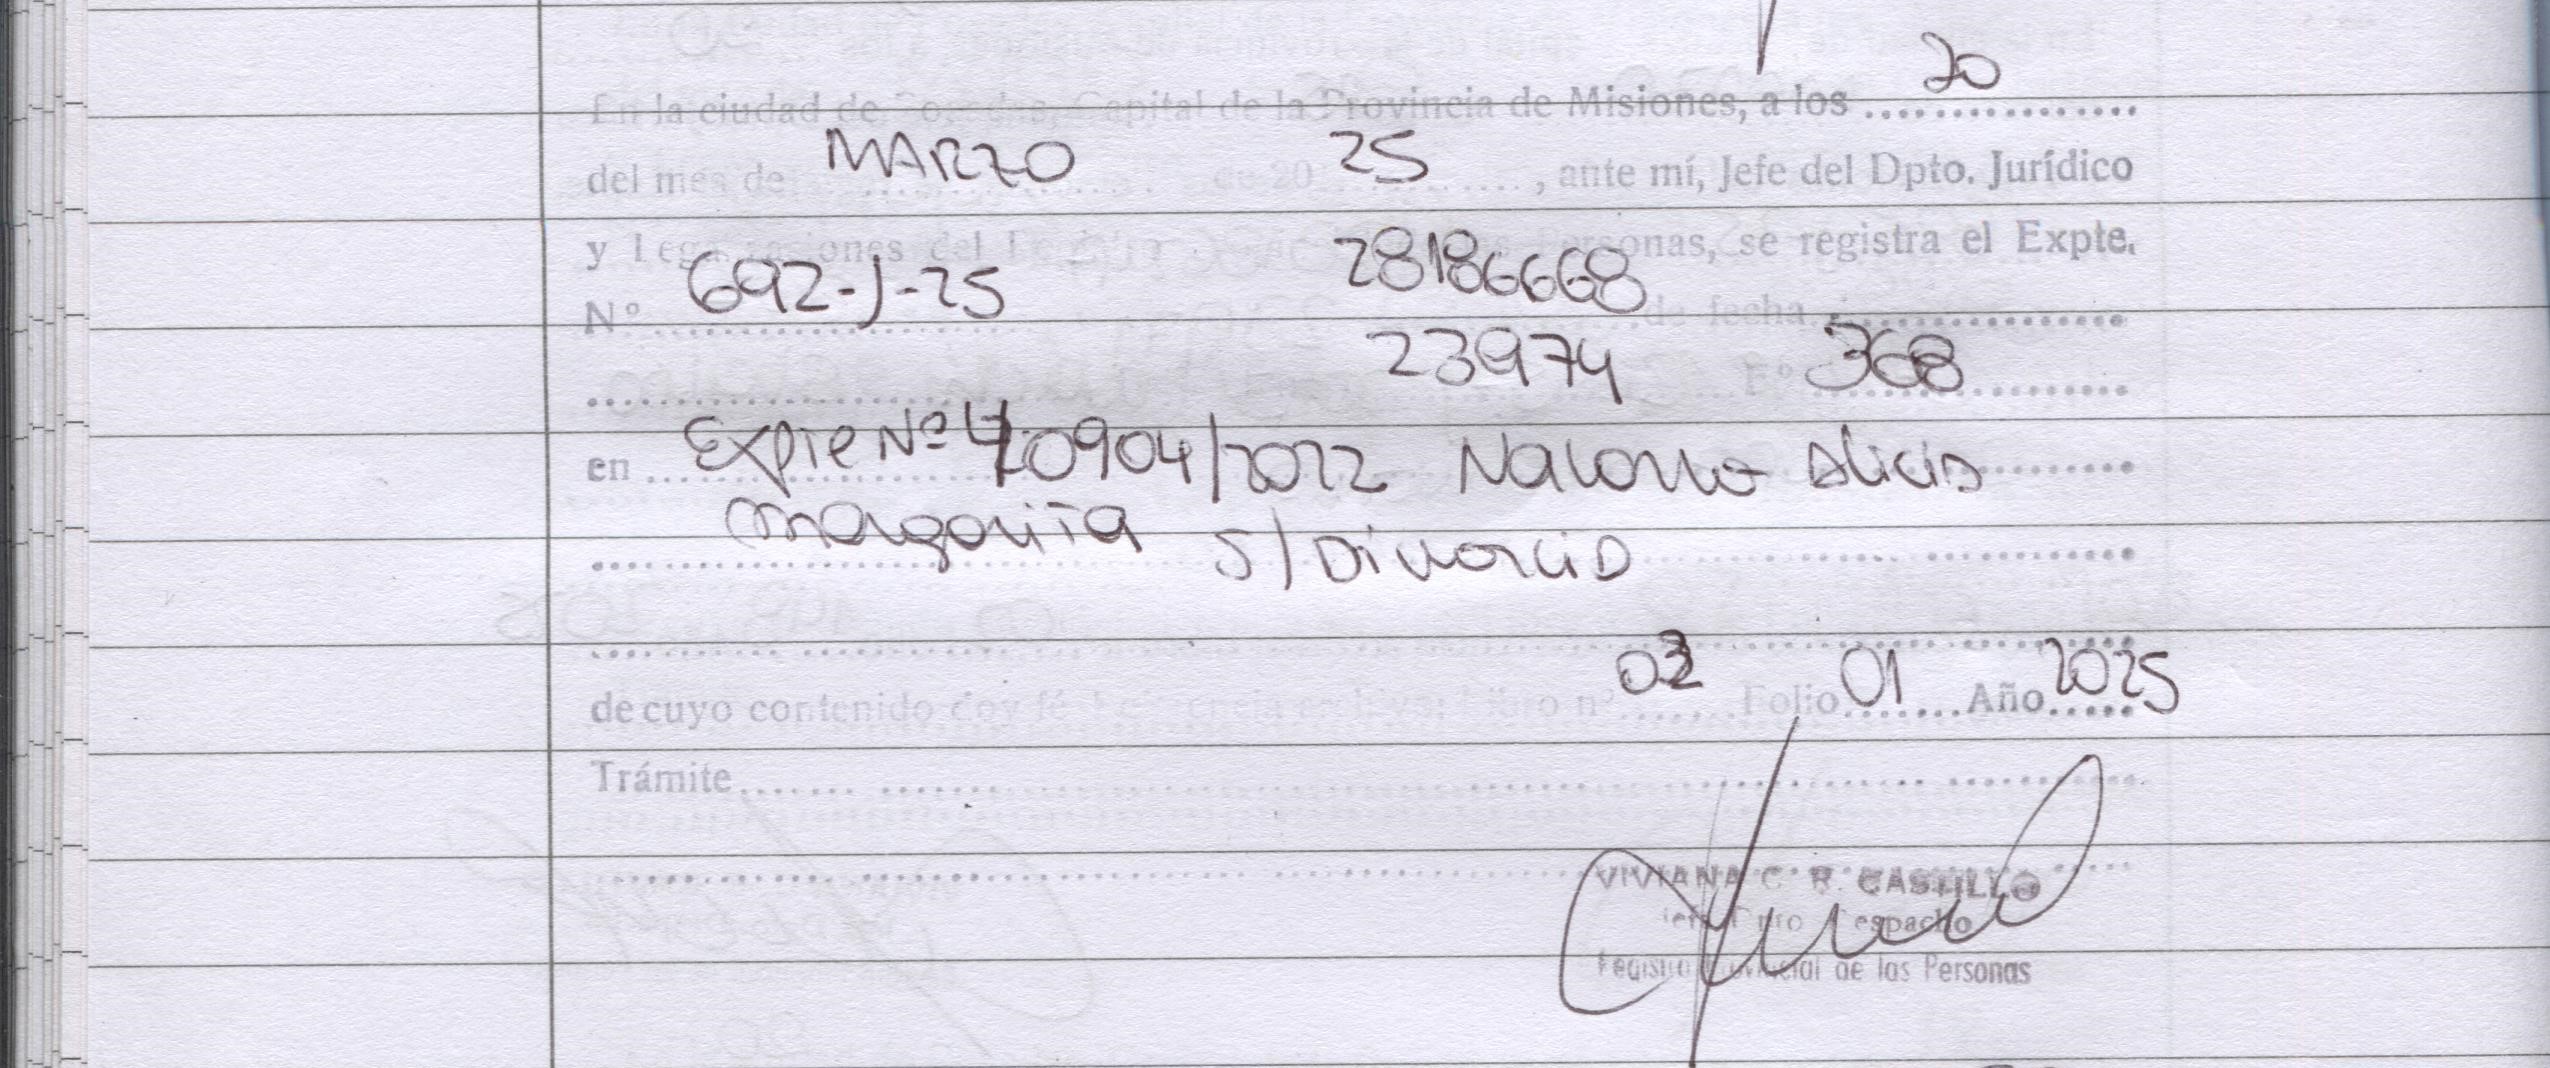 20
En la ciudad de Posadas, Capital de la Provincia de Misiones, a los ...............
MARZO 25
del mes de ..................... de 20 ............, ante mí, Jefe del Dpto. Jurídico
y Legalizaciones del Personas, se registra el Expte.
692-J-25 28186668
Nº ..................... de fecha ...............
23974 Fº 368
en Expte Nº 120904/2022 Alicia
Margarita S/ Divorcio
03 01 2025
de cuyo contenido doy fé. Libro nº ....... Folio ....... Año .....
Trámite ....... ...............
VIVIANA C. R. CASTILLO
Jefe Dpto Despacho
Registro Provincial de las Personas